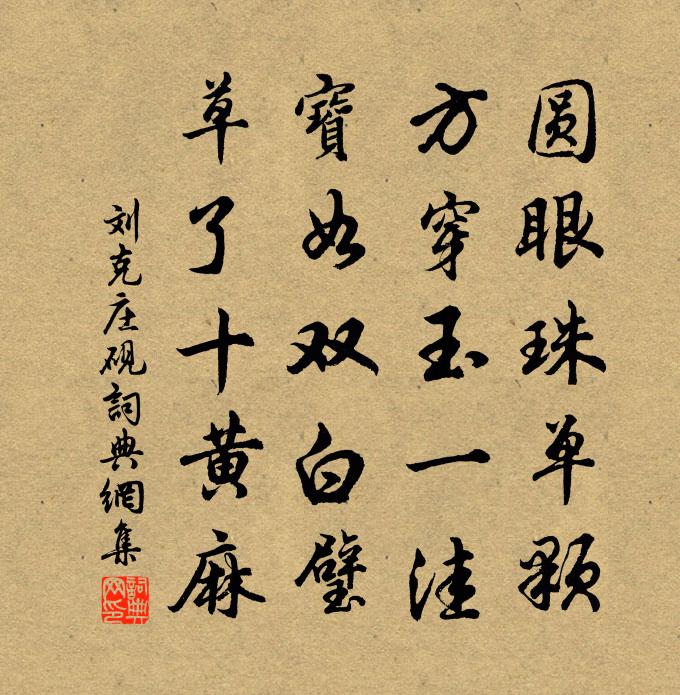 圆眼珠单颗
方穿玉一洼
寶如双白璧
草了十黄麻
刘克庄砚詞典網集
詞典网印